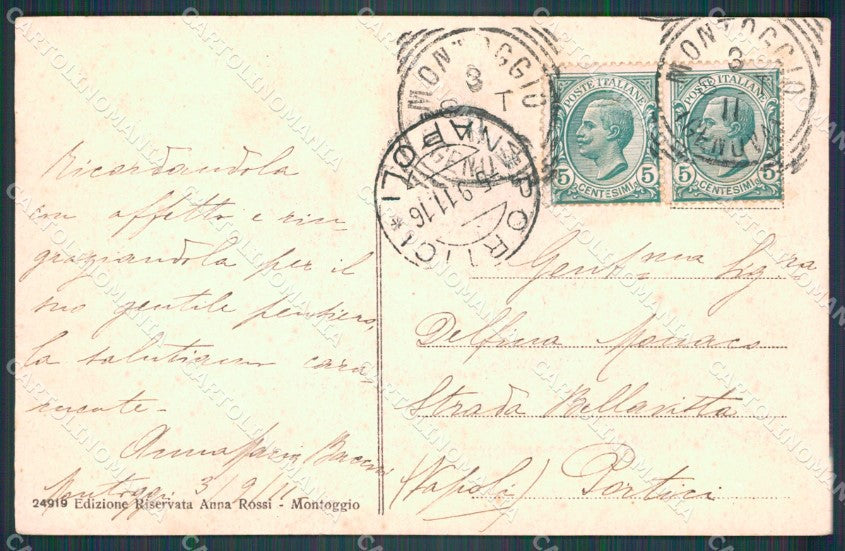 Ricordandola
con affetto e rin
graziandola per il
suo gentile pensiero,
la salutiamo cara
mente -
Anna Maria
Montoggio 3/9/11
24919 Edizione Riservata Anna Rossi - Montoggio
MONTOGGIO
3
GENOVA
PORTICI * NAPOLI
9.11.16
POSTE ITALIANE
5 CENTESIMI 5
MONTOGGIO
3
11
(GENOVA)
POSTE ITALIANE
5 CENTESIMI 5
Gent.ma Sig.ra
Delfina Monaco
Strada Bellavista
(Napoli) Portici
CARTOLINOMANIA